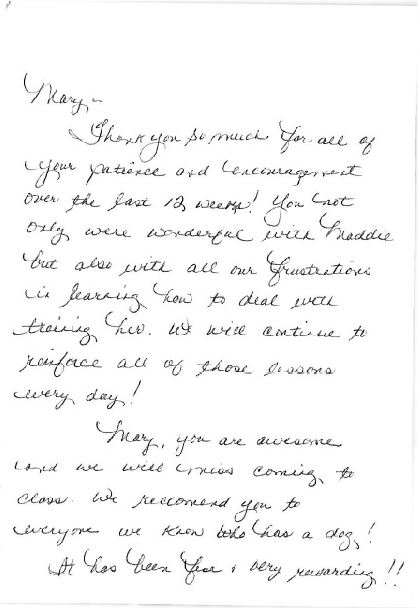 Mary,
Thank you so much for all of
your patience and encouragement
over the last 12 weeks! You not
only were wonderful with Maddie
but also with all our frustrations
in learning how to deal with
training her. We will continue to
reinforce all of those lessons
every day!
Mary, you are awesome
and we will miss coming to
class. We reccomend you to
everyone we know who has a dog!
It has been fun & very rewarding!!